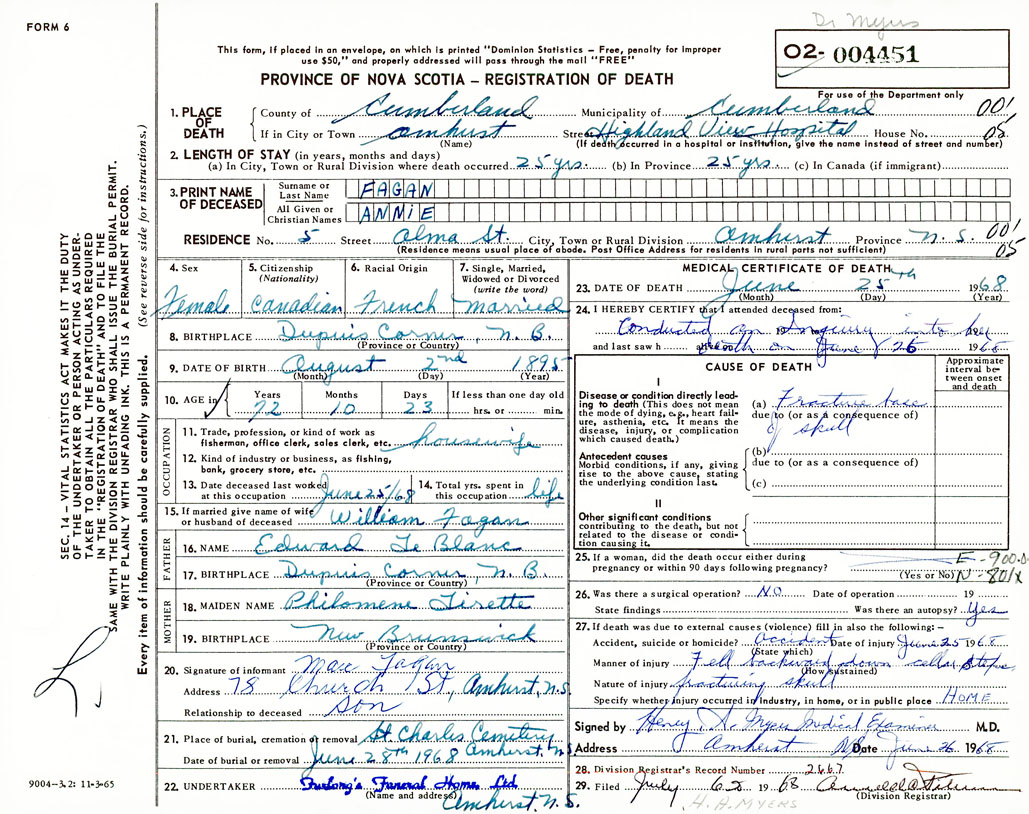 Dr Myers
FORM 6
This form, if placed in an envelope, on which is printed "Dominion Statistics – Free, penalty for improper
use $50," and properly addressed will pass through the mail "FREE"
PROVINCE OF NOVA SCOTIA – REGISTRATION OF DEATH
O2- 004451
For use of the Department only
1. PLACE OF DEATH
County of Cumberland Municipality of Cumberland 001
If in City or Town Amhurst Street Highland View Hospital House No. 05
(Name) (If death occurred in a hospital or institution, give the name instead of street and number)
2. LENGTH OF STAY (in years, months and days)
(a) In City, Town or Rural Division where death occurred 25 yrs. (b) In Province 25 yrs. (c) In Canada (if immigrant)
3. PRINT NAME OF DECEASED
Surname or Last Name FAGAN
All Given or Christian Names ANNIE
RESIDENCE No. 5 Street Alma St. City, Town or Rural Division Amhurst Province N.S. 001
(Residence means usual place of abode. Post Office Address for residents in rural parts not sufficient) 05
4. Sex
Female
5. Citizenship (Nationality)
Canadian
6. Racial Origin
French
7. Single, Married, Widowed or Divorced (write the word)
Married
8. BIRTHPLACE Dupuis Corner, N.B.
(Province or Country)
9. DATE OF BIRTH August 2nd 1895
(Month) (Day) (Year)
10. AGE in Years Months Days If less than one day old
72 10 23 hrs. or min.
OCCUPATION
11. Trade, profession, or kind of work as
fisherman, office clerk, sales clerk, etc. housewife
12. Kind of industry or business, as fishing,
bank, grocery store, etc.
13. Date deceased last worked at this occupation June 25/68
14. Total yrs. spent in this occupation life
15. If married give name of wife or husband of deceased William Fagan
FATHER
16. NAME Edward Le Blanc
17. BIRTHPLACE Dupuis Corner, N.B.
(Province or Country)
MOTHER
18. MAIDEN NAME Philomene Girette
19. BIRTHPLACE New Brunswick
(Province or Country)
20. Signature of informant Mac Fagan
Address 78 Church St., Amherst, N.S.
Relationship to deceased Son
21. Place of burial, cremation or removal St. Charles Cemetery
Date of burial or removal June 28th 1968 Amherst, N.S.
22. UNDERTAKER Furlong's Funeral Home, Ltd.
(Name and address) Amhurst, N.S.
MEDICAL CERTIFICATE OF DEATH
23. DATE OF DEATH June 25th 1968
(Month) (Day) (Year)
24. I HEREBY CERTIFY that I attended deceased from:
Conducted an Inquiry into her 19
and last saw h death on June 25 1968
CAUSE OF DEATH
Approximate interval between onset and death
I
Disease or condition directly leading to death (This does not mean the mode of dying, e.g., heart failure, asthenia, etc. It means the disease, injury, or complication which caused death.)
(a) Fracture base
due to (or as a consequence of)
of skull
Antecedent causes
Morbid conditions, if any, giving rise to the above cause, stating the underlying condition last.
(b)
due to (or as a consequence of)
(c)
II
Other significant conditions
contributing to the death, but not related to the disease or condition causing it.
25. If a woman, did the death occur either during
pregnancy or within 90 days following pregnancy? E-900.0
(Yes or No) N-801X
26. Was there a surgical operation? NO Date of operation 19
State findings Was there an autopsy? Yes
27. If death was due to external causes (violence) fill in also the following: –
Accident, suicide or homicide? Accident Date of injury June 25 1968
(State which)
Manner of injury Fell backward down cellar steps
(How sustained)
Nature of injury fracturing skull
Specify whether injury occurred in industry, in home, or in public place HOME
Signed by Henry A. Myers Medical Examiner M.D.
Address Amherst NS Date June 26 1968
28. Division Registrar's Record Number 2667
29. Filed July 19 68
(Division Registrar)
H.A. MYERS
SEC. 14 – VITAL STATISTICS ACT MAKES IT THE DUTY
OF THE UNDERTAKER OR PERSON ACTING AS UNDER-
TAKER TO OBTAIN ALL THE PARTICULARS REQUIRED
IN THE "REGISTRATION OF DEATH" AND TO FILE THE
SAME WITH THE DIVISION REGISTRAR WHO SHALL ISSUE THE BURIAL PERMIT.
WRITE PLAINLY WITH UNFADING INK. THIS IS A PERMANENT RECORD.
Every item of information should be carefully supplied. (See reverse side for instructions.)
9004–3.2: 11-3-65